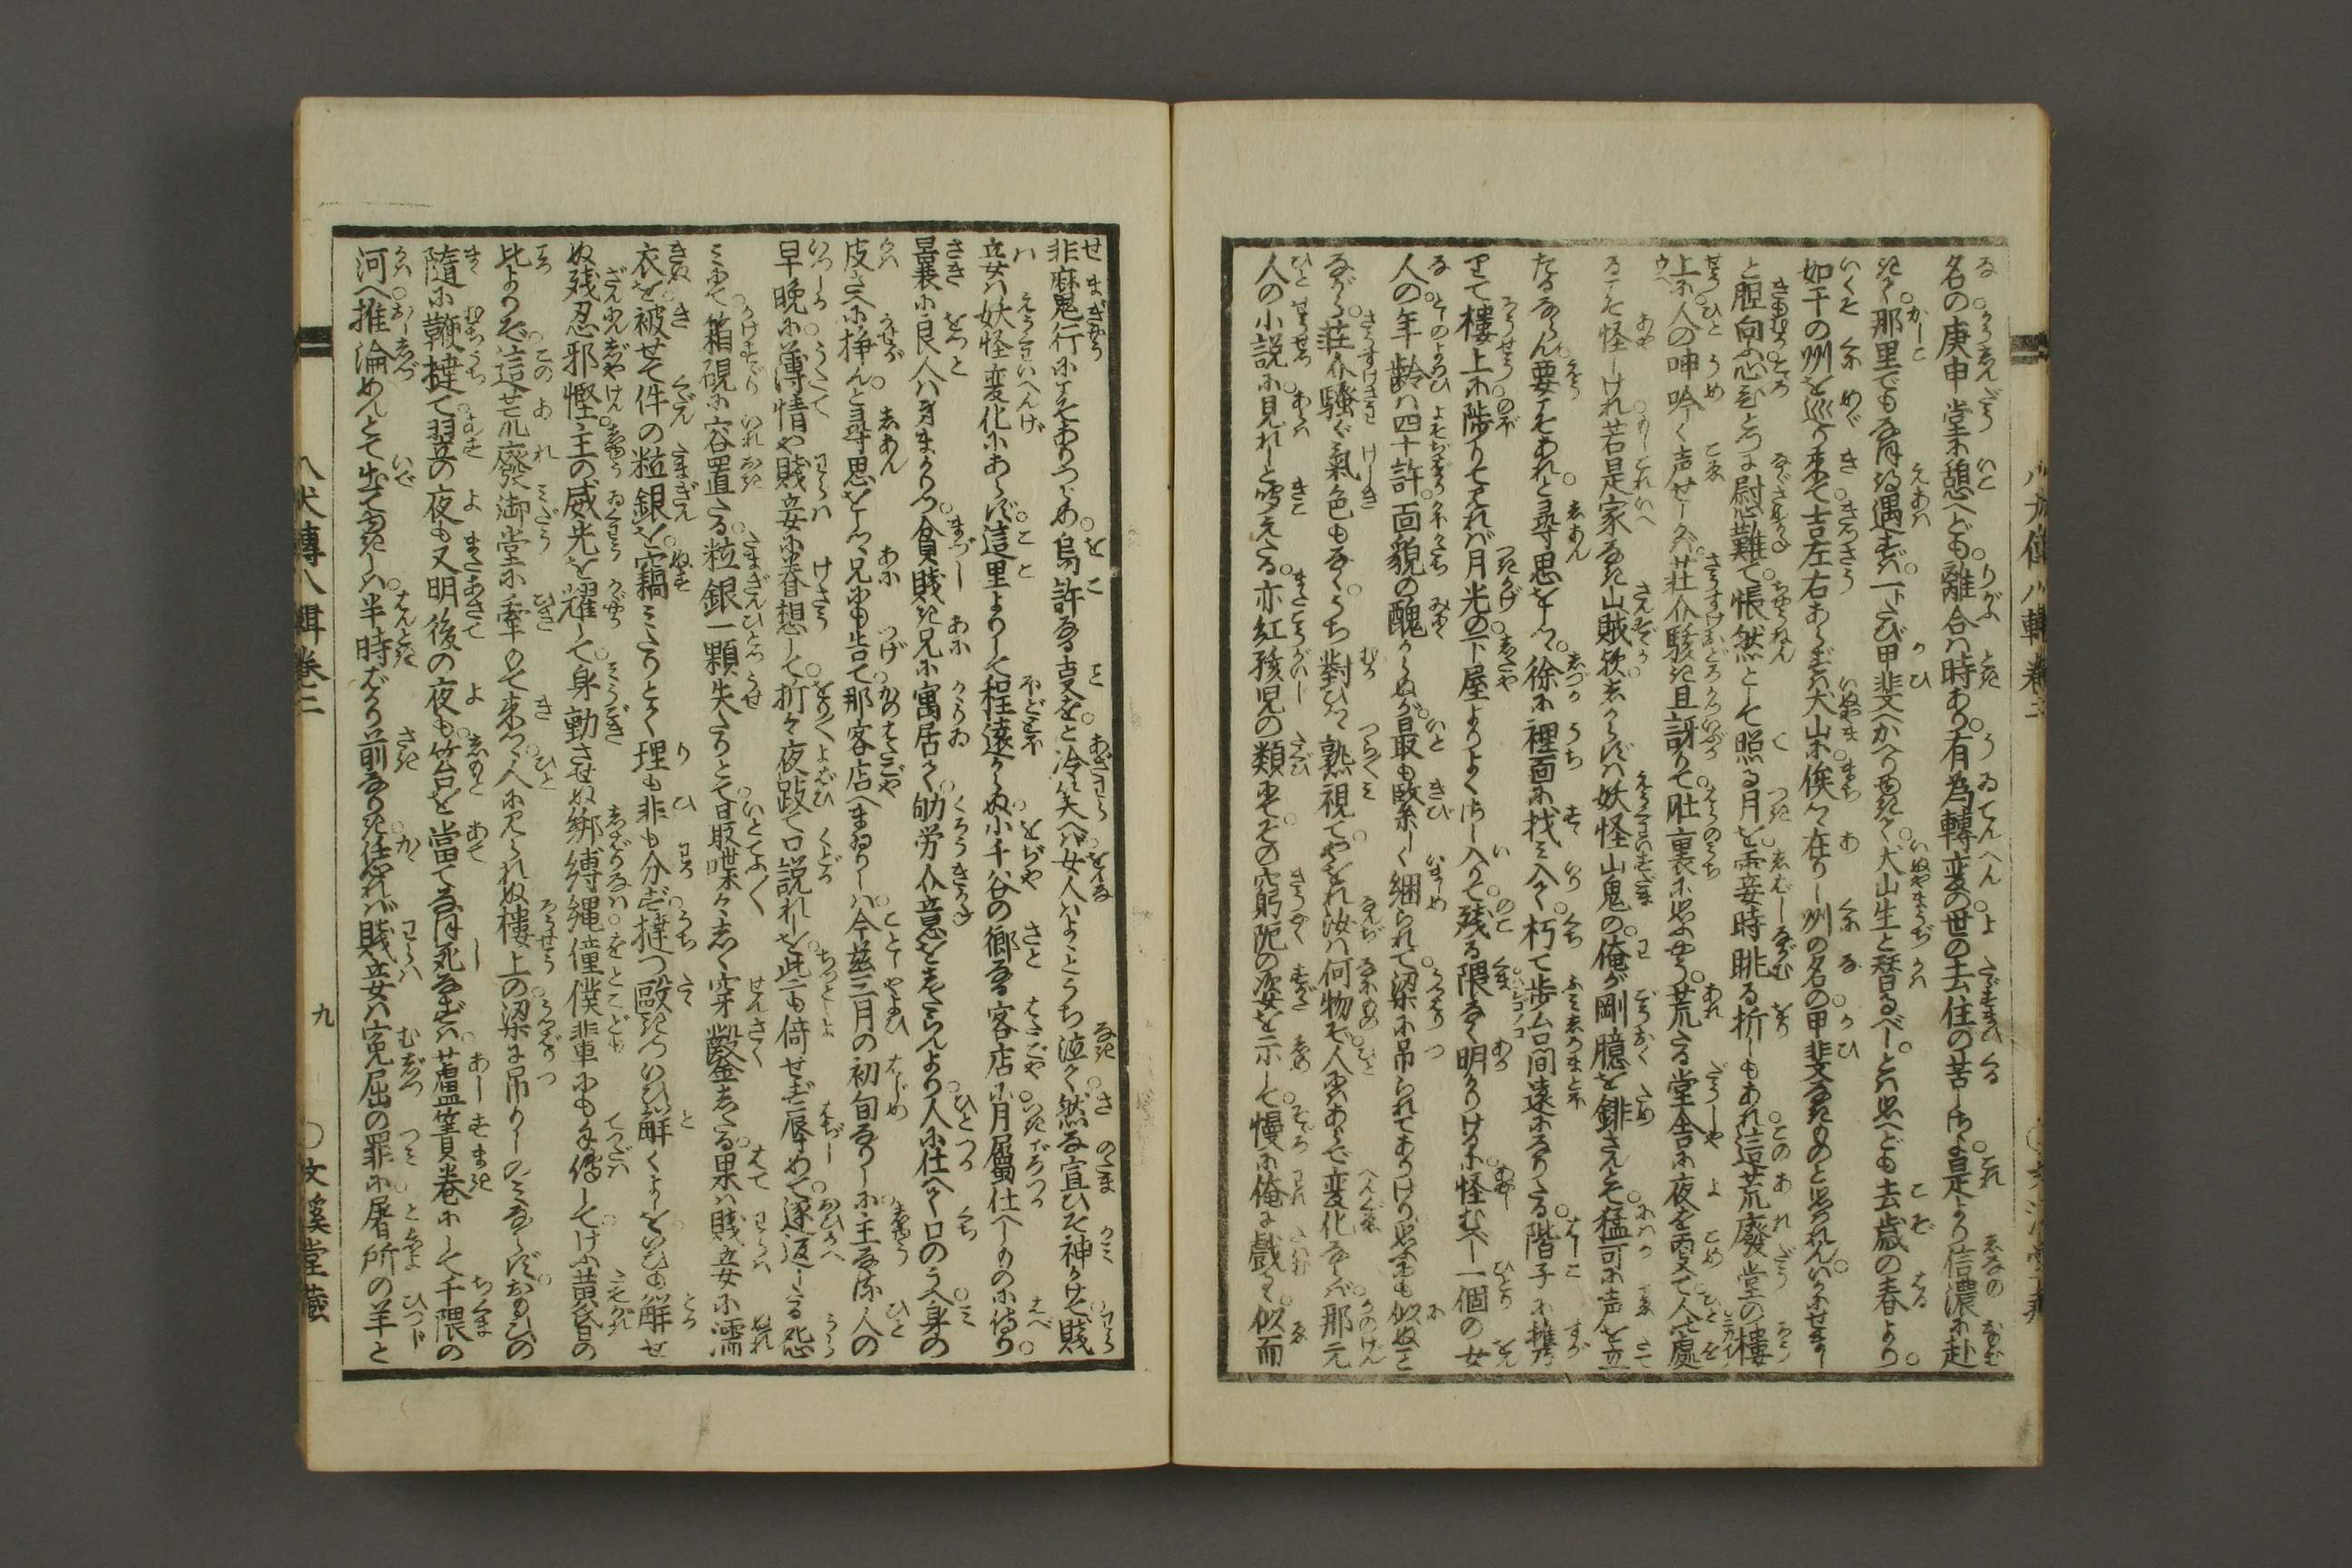 名の庚申堂に憩へども離合は時あり有為轉変の世の去住の苦しさよ是より信濃に赴
きて那里でもなほ得遇ずは一トたび甲斐へかへるべく犬山生と替るべしとは思へども去歳の春より
如干の州を巡り来て吉左右あらずは犬山に俟れ在りし州の名の甲斐なきものと思れんいかにせまし
と胆向ふ心ひとつに慰難て悵然として照る月を霎時眺る折しもあれ這荒廢堂の樓
上に人の呻吟く声せしかば荘介駭き且訝りて肚裏に思ふやう荒たる堂舎に夜を霄て人の處
るこそ怪しけれ若是家なき山賊欤しからずは妖怪山鬼の俺が剛臆を錐さんとて猛可に声を立
たるならん要こそあれと尋思をしつ徐に裡面に找み入りて朽て歩ム間遠になりたる階子に携
りて樓上に陟りて見れば月光の下屋よりよくさし入りて残る隈なく明かりけるに怪むべし一個の女
人の年齢は四十許面貌の醜からぬが最も緊しく綑られて梁に吊られてありけり思ふにも似ぬこと
ながら荘介騒ぐ氣色もなくうち對ひつ熟視てやをれ汝は何物ぞ人にあらで変化ならば那元
人の小説に見れしと聞えたる亦紅孩児の類にてその窮阨の姿を示して慢に俺に戯るゝ似而
非麻鬼行にこそありつらめ烏許なる㕝をと冷笑へば女人はよゝとうち泣て然な宣ひそ神かけて賤
妾は妖怪変化にあらず這里よりして程遠からぬ小千谷の郷なる客店に月屬仕へしものに侍り
曩に良人は身まかりつ貧賤き兄に寓居て劬労介意をしたらんより人に仕へて口のうへ身の
皮さへに掙んと尋思をしつゝ兄にも告て那客店へまゐりしは今茲三月の初旬なりしに主なる人の
早晩に薄情や賤妾に眷想して折々夜跂て口説れしを此も倚せず辱めて逐返したる怨
みにて箱硯に容置たる粒銀一顆失たりとて甘最喋々しく穿鑿したる果は賤妾に濡
衣を被せて件の粒銀を竊みたりとて理も非も分ず撻つ毆きついひ觧くよしをいひも觧せ
ぬ残忍邪慳主の威光を耀して身動させぬ綁縛縄僮僕輩にも手傳してけふ黄昏の
比よりぞ這荒廢御堂に牽もて来つゝ人に見られぬ樓上の梁に吊りしのみならずおもひの
隨に鞭撻て翌の夜も又明後の夜も笞を當てなほ死なずは葦簀巻にして千隈の
河へ推淪めんとて出てゆきしは半時ばかり前なりきかゝれば賤妾は寃屈の罪に屠所の羊と
八犬傳八輯卷三
九
文溪堂藏